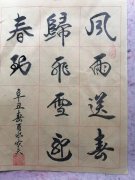 風雨送春
歸飛雪迎
春到
辛丑